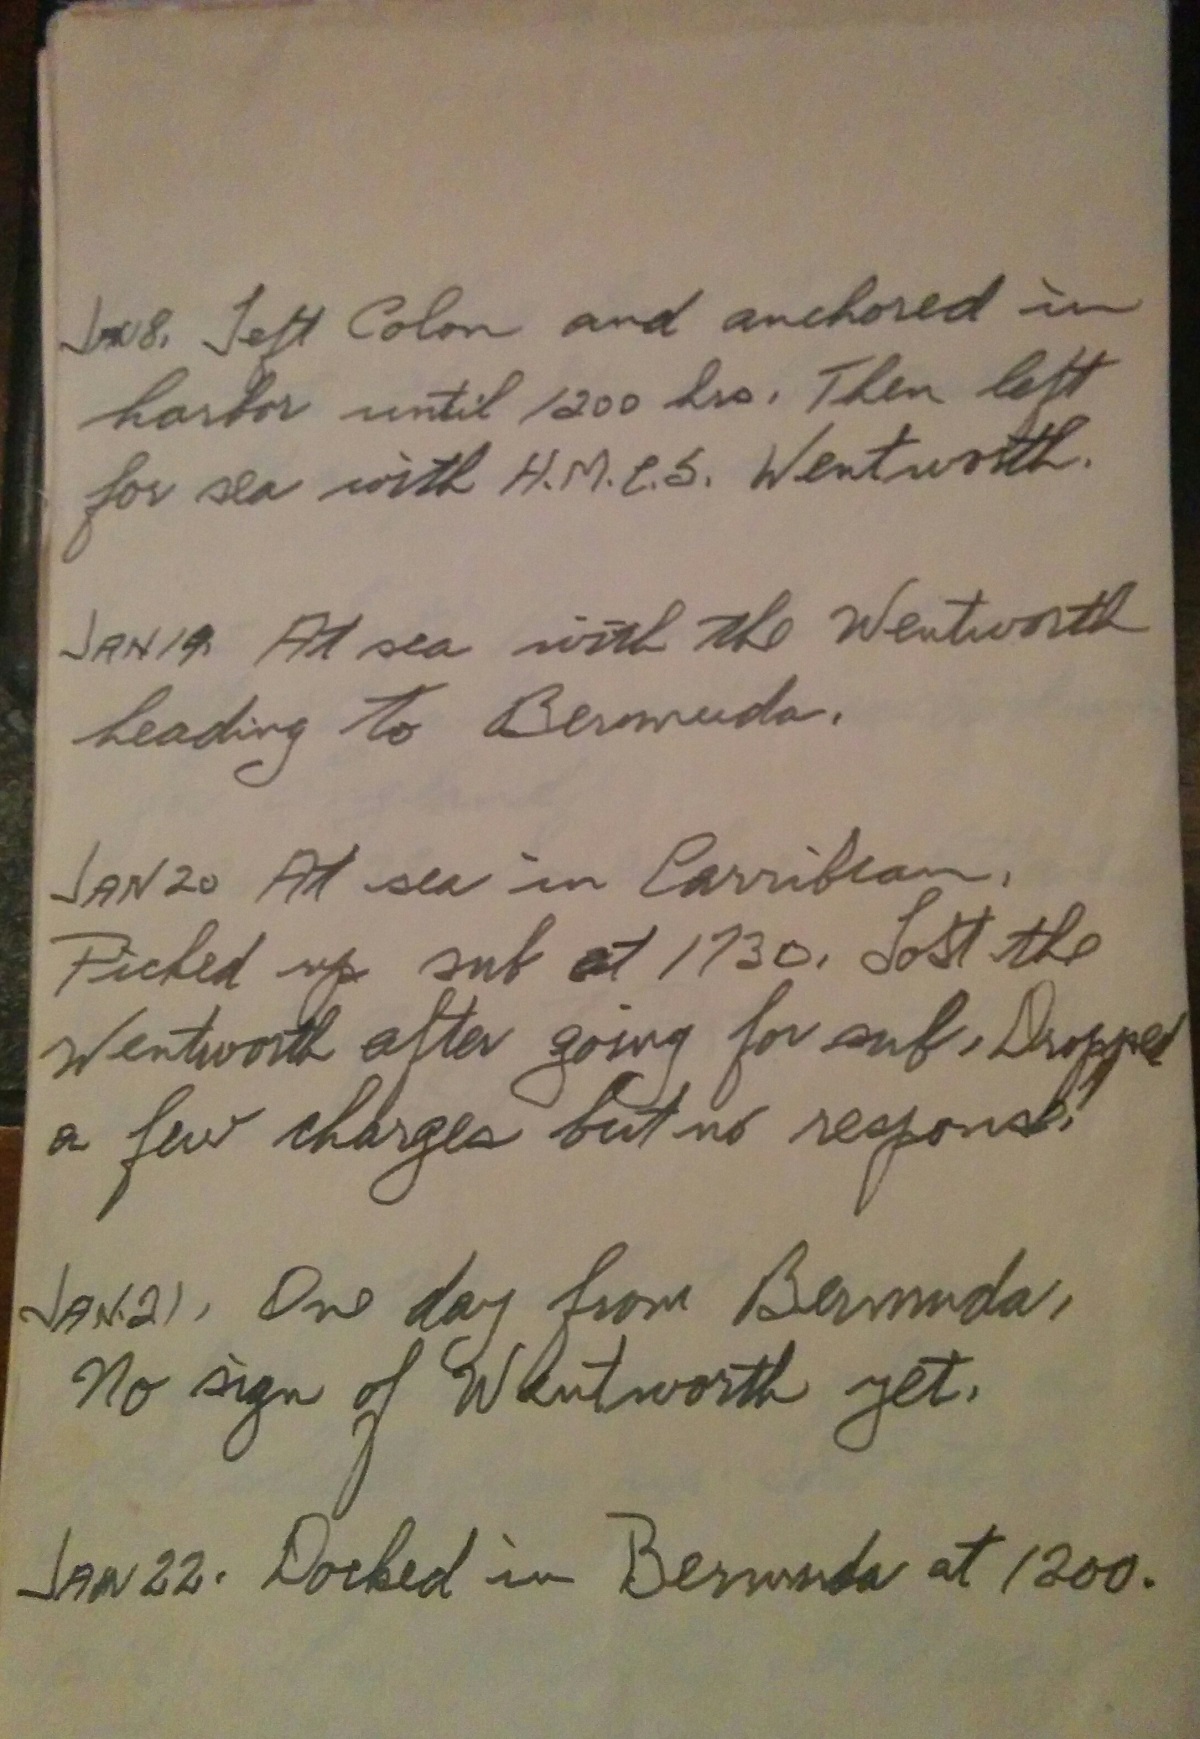 JAN 8. Left Colon and anchored in
harbor until 1200 hrs. Then left
for sea with H.M.C.S. Wentworth.
JAN 19. At sea with the Wentworth
heading to Bermuda.
JAN 20 At sea in Carribean.
Picked up sub at 1730. Lost the
Wentworth after going for sub. Dropped
a few charges but no response.
JAN. 21. One day from Bermuda,
No sign of Wentworth yet.
JAN 22. Docked in Bermuda at 1200.